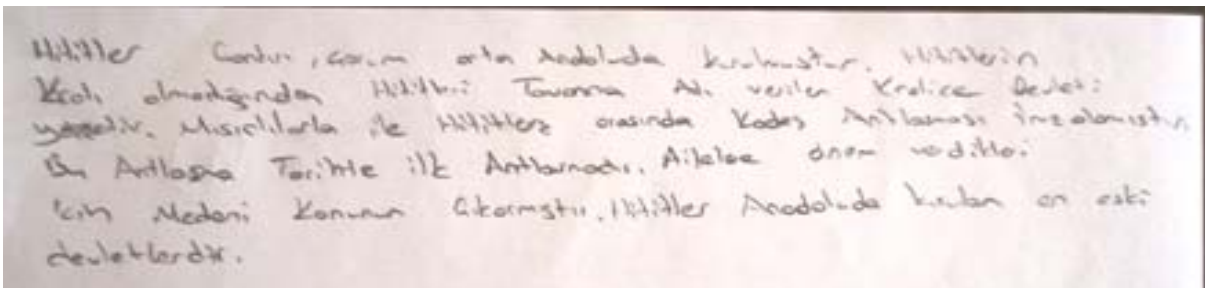 Hititler Çankırı, Çorum orta Anadoluda kurulmuştur. Hititlerin
Kralı olmadığından Hititleri Tavanna Adı verilen Kraliçe Devleti
yönetir. Mısırlılarla ile Hititlere arasında Kadeş Antlaması İmzalamıştır.
Bu Antlaşma Tarihte ilk Antlaşmadır. Ailelee önem verdikleri
için Medeni Kanunun Çıkarmıştır. Hititler Anadoluda kurulan en eski
devletlerdir.